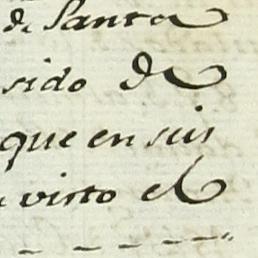 de Santa
sido de
que en sus
visto el